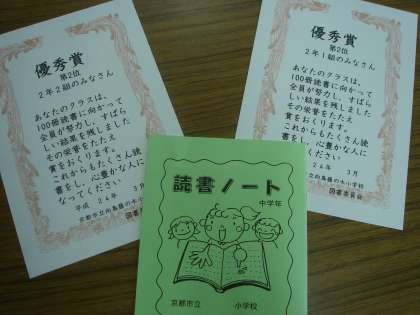 優秀賞
第2位
2年2組のみなさん
あなたのクラスは、
100冊読書に向かって
全員が努力し、すばら
しい結果を残しました
その栄誉をたたえ
賞をおくります。
これからもたくさん読
書をし、心豊かな人に
なってください
平成 24年 3月
京都市立向島藤の木小学校
図書委員会
優秀賞
第2位
2年1組のみなさん
あなたのクラスは、
100冊読書に向かって
全員が努力し、すばら
しい結果を残しました
その栄誉をたたえ
賞をおくります。
これからもたくさん読
書をし、心豊かな人に
ください
24年 3月
立向島藤の木小学校
図書委員会
読書ノート
中学年
京都市立 小学校